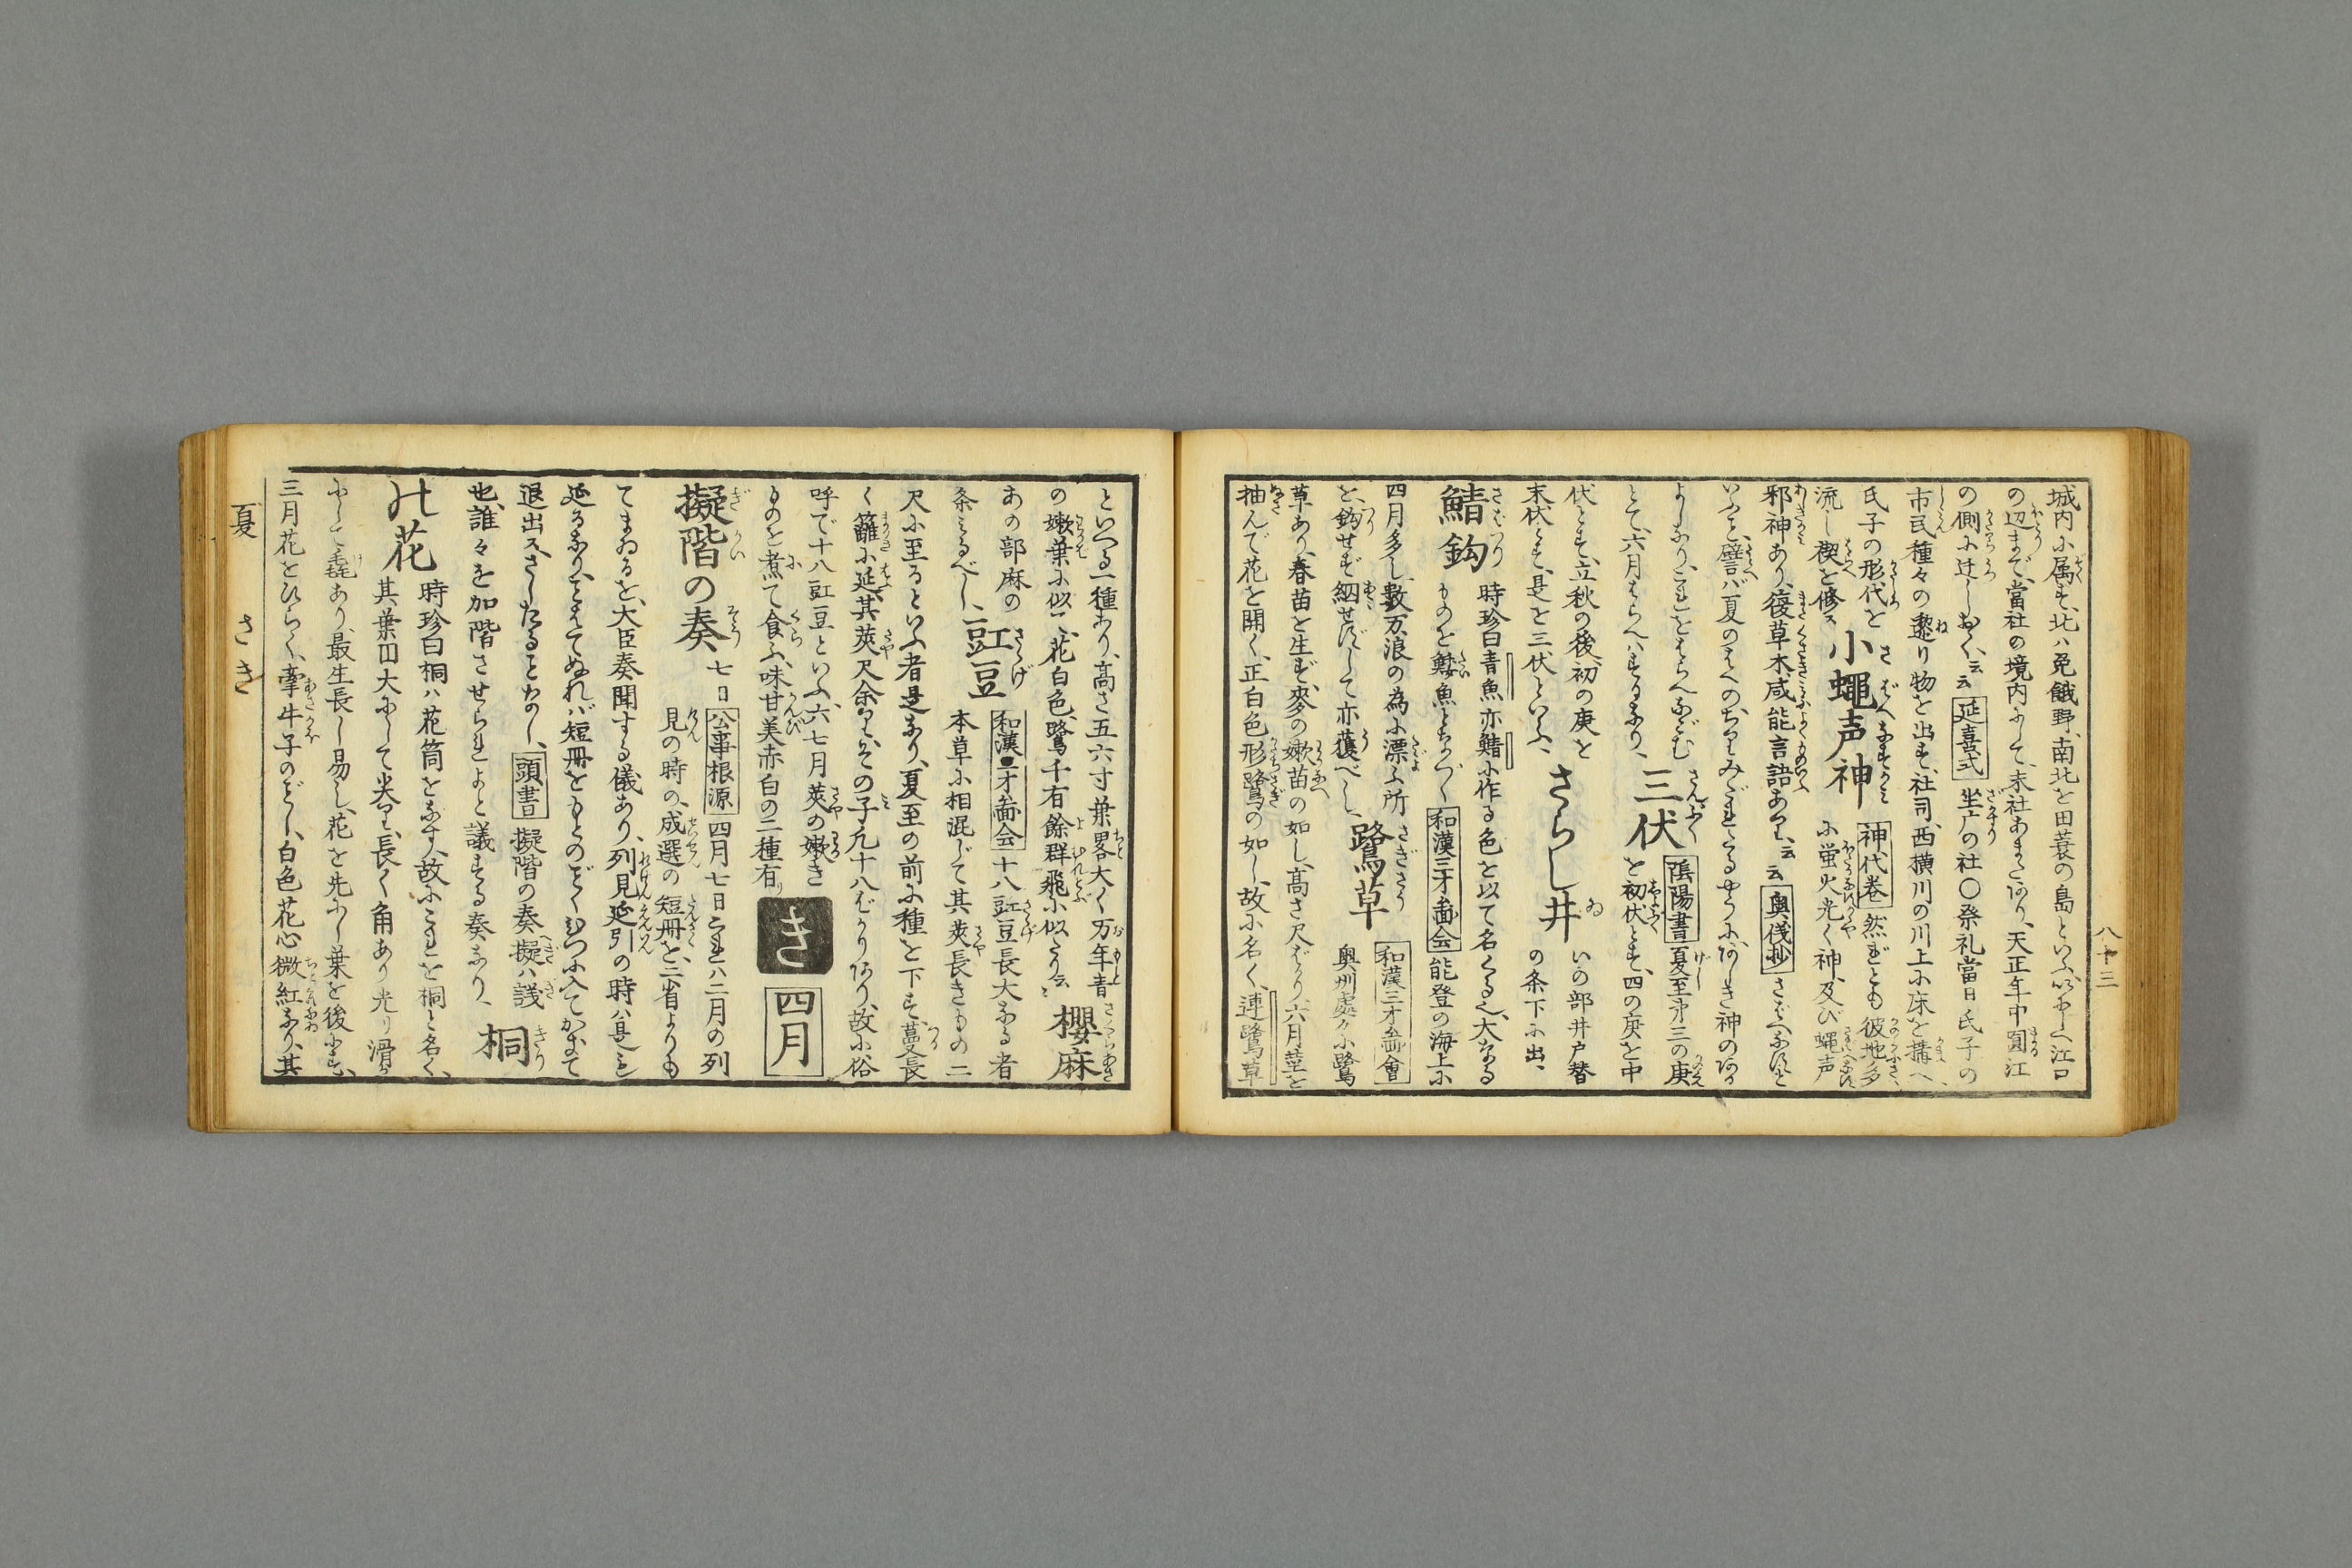 城内に属す、北ハ兎餓野、南北を田蓑の島といふ、いにしへ江口
の辺まで、當社の境内にて、末社あまたあり、天正年中圓江
の側に辻しおく、云云 延喜式 坐广の社〇祭礼當日氏子の
市民種々の邌り物を出す、社司、西横川の川上に床を搆へ、
氏子の形代を
流し禊を修ス
小蠅声神
神代巻 然ども彼地多
に螢火光く神及び蠅声
邪神あり、復草木咸能言語あり、云云 奥儀抄 さばへなすと
いふと、譬ば夏のはへのちりみだれたるやうに、あしき神のある
よしなり、これをはらへなごむ
とて、六月はらへハするなり、
三伏
陰陽書 夏至才三の庚
を初伏とす、四の庚を中
伏とす、立秋の後、初の庚を
末伏とす、是を三伏といふ、
さらし井
いの部井戸替
の条下に出、
鯖釣
時珍曰青魚亦鯖に作る色を以て名くる也、大なる
ものを鰘魚と名づく 和漢三才圖会 能登の海上に
四月多し、數万浪の為に漂ふ所
を、鈎せず網せずして亦獲べし、
鷺草
和漢三才圖會
奥州處々小鷺
草あり、春苗を生ず、麥の嫩苗の如し、高さ尺ばかり六月莖を
抽んで花を開く、正白色形鷺の如し、故に名く、連鷺草
八十三
といへる一種あり、高さ五六寸葉畧大く万年青
の嫩葉に似て、花白色、鷺千有餘群飛に似たり云云
櫻麻
あの部麻の
条みるべし、
豇豆
和漢三才圖会 十八豇豆長大なる者
本草に相混じて其莢長きもの二
尺に至るといふ者是なり、夏至の前に種を下す、蔓長
く籬に延、其莢尺余りその子凡十八ばかりあり、故に俗
呼で十八豇豆といふ、六七月莢の嫩き
ものを煮て食ふ、味甘美赤白の二種有り
き
四月
擬階の奏
七日 公事根源 四月七日これハ二月の列
見の時の、成選の短册を、二省よりも
てまゐるを、大臣奏聞する儀あり、列見延引の時ハ是も
延るなり、とまてぬれば短册をもとのごとくはこに入てかさねて
退出スさしたることなし、 頭書 擬階の奏擬ハ議
也、誰々を加階させられよと議する奏なり、
桐
の花
時珍曰桐ハ花筒をなす、故にこれを桐と名く、
其葉四大にして尖り、長く角あり光り滑か
にして毳あり、最生長し易し、花を先にし葉を後にす、
三月花をひらく、牽牛子のごとし、白色花心微紅なり、其
夏 さき